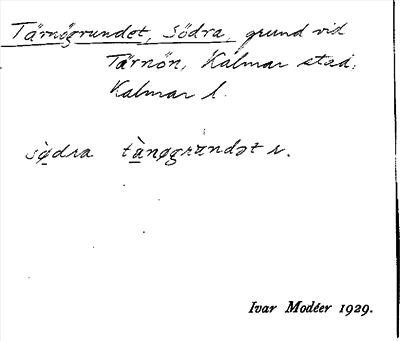 Tärnögrundet, Södra, grund vid
Tärnön, Kalmar stad,
Kalmar l.
sø̀dra tà̱nøgrundət n.
Ivar Modéer 1929.